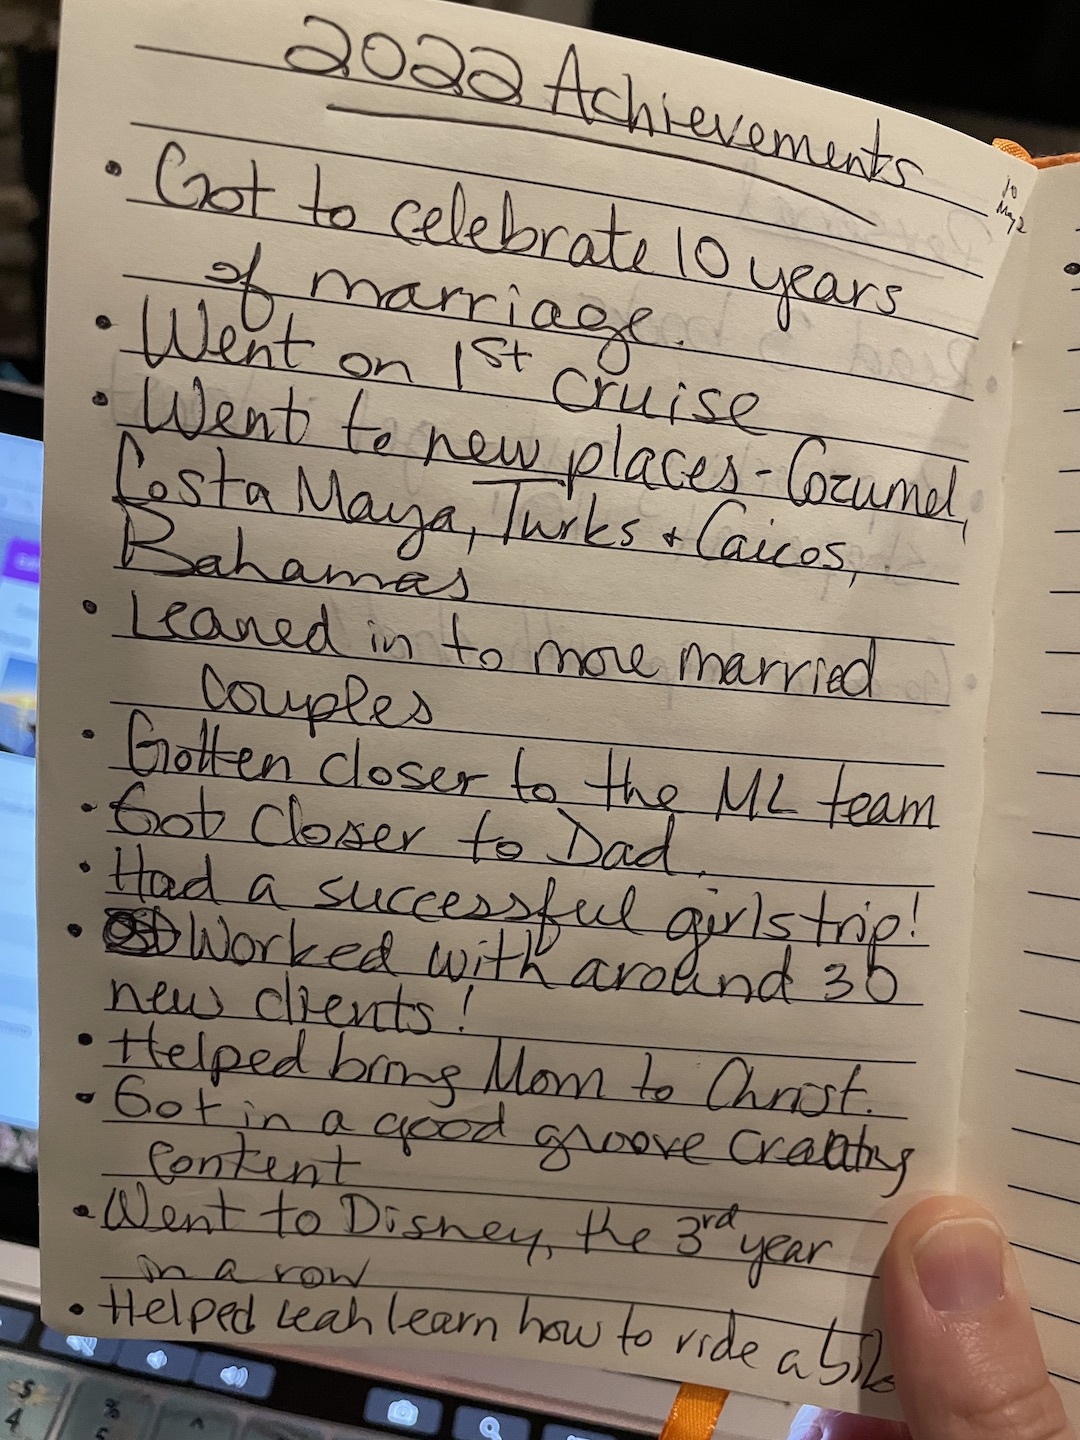 2022 Achievements
• Got to celebrate 10 years
of marriage.
• Went on 1st cruise
• Went to new places - Cozumel,
Costa Maya, Turks + Caicos,
Bahamas
• Leaned in to more married
couples
• Gotten closer to the ML team
• Got closer to Dad.
• Had a successful girls trip!
• Worked with around 30
new clients!
• Helped bring Mom to Christ.
• Got in a good groove creating
content
• Went to Disney, the 3rd year
in a row
• Helped Leah learn how to ride a